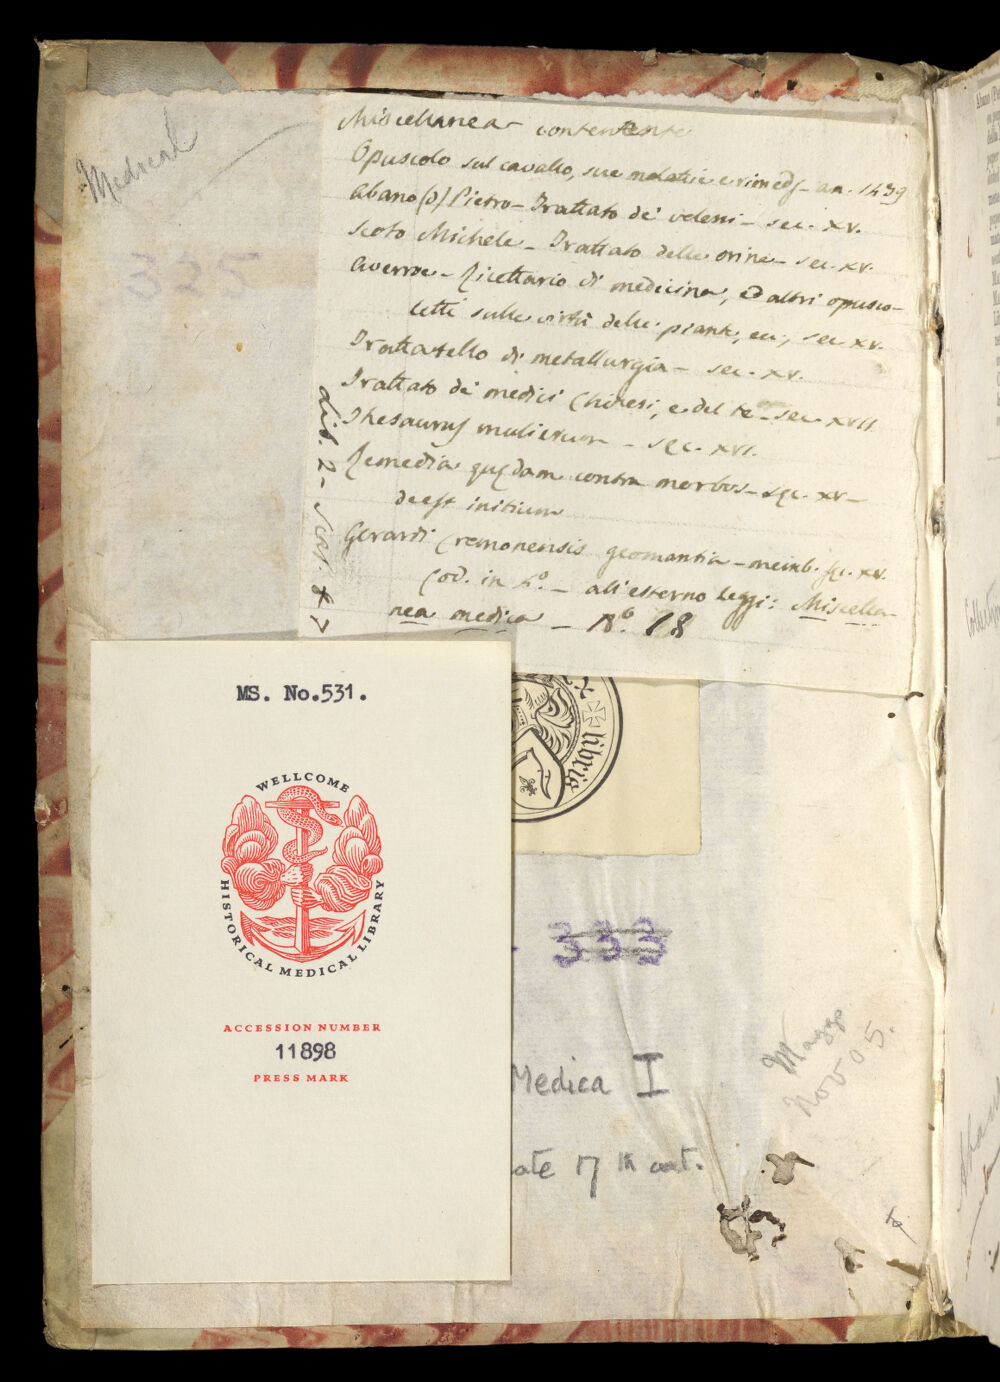 Medical
325
Miscellanea contenente
Opuscolo sul cavallo, sue malatie e rimedj - an. 1439
Abano (d) Pietro - Trattato de' veleni - sec. XV.
Scoto Michele - Trattato delle orine - sec. XV.
Averroe - Ricettario di medicina, ed altri opusco-
letti sulle virtù delle piante, ec., sec XV.
Trattatello di metallurgia - sec. XV.
Trattato de' medici Chinesi, e del te - sec XVII.
Thesaurus mulierum - sec. XVI.
Remedia quedam contra morbos - sec. XV -
deest initium
Gerardi Cremonensis geomantia - memb. sec. XV.
Cod. in 4º. - all'esterno leggi: Miscella-
nea medica - Nº. 18
MS. No.531.
WELLCOME
HISTORICAL MEDICAL LIBRARY
ACCESSION NUMBER
11898
PRESS MARK
libris
333
Medica I
ate 17th cent.
Maggs
Nov 05.